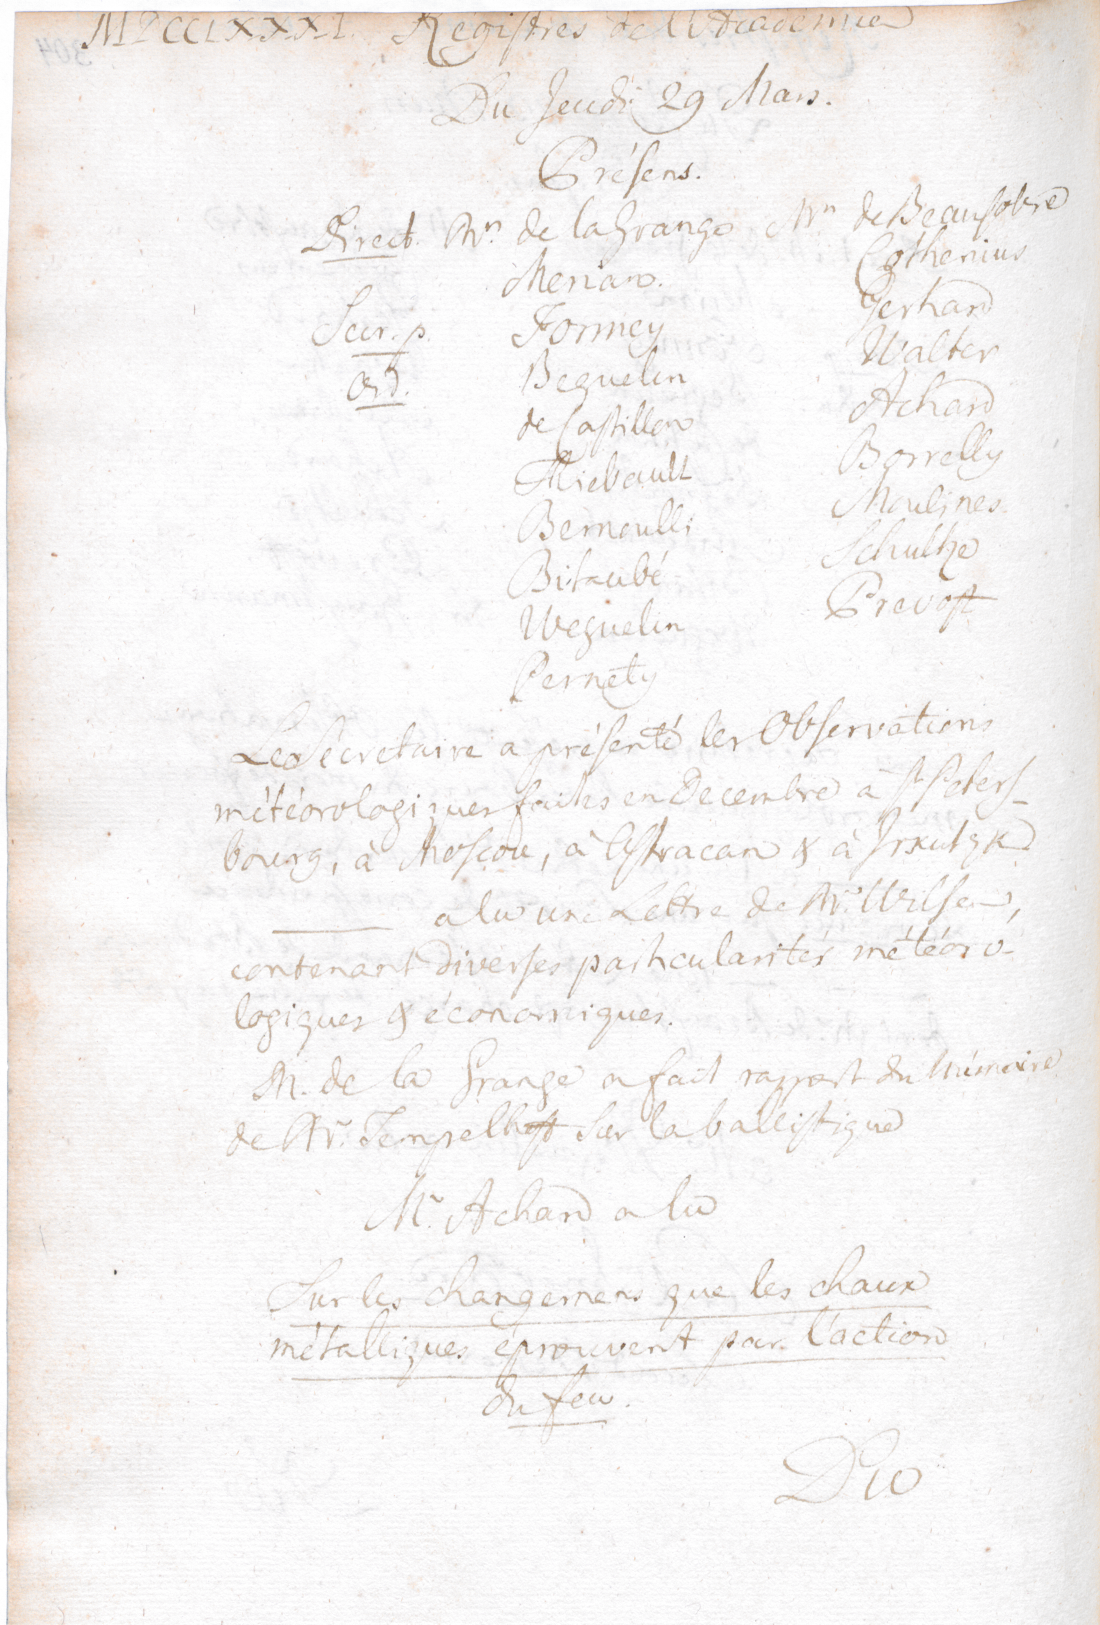 MDCCLXXXI. Registres de l'Academie
Du Jeudi 29 Mars.
Présens.
Direct. Mrs. de la Grange
Merian.
Secr. p. Formey
Ord. Beguelin
de Castillon
Thiebault
Bernoulli
Bitaubé
Weguelin
Pernety
Mrs. de Beausobre
Cothenius
Gerhard
Walter
Achard
Borrelly
Moulines.
Schultze
Prevost
Le Sécretaire a présenté les Observations
météorologiques faites en Decembre à St Peters-
bourg, à Moscou, à Astracan & à Irkutzk
——— a lu une Lettre de Mr. Wilsen,
contenant diverses particularités météoro-
logiques & économiques.
M. de la Grange a fait rapport du Mémoire
de Mr. Tempelhoff sur la ballistique
Mr. Achard a lu
Sur les changemens que les chaux
métalliques éprouvent par l'action
du feu.
Du